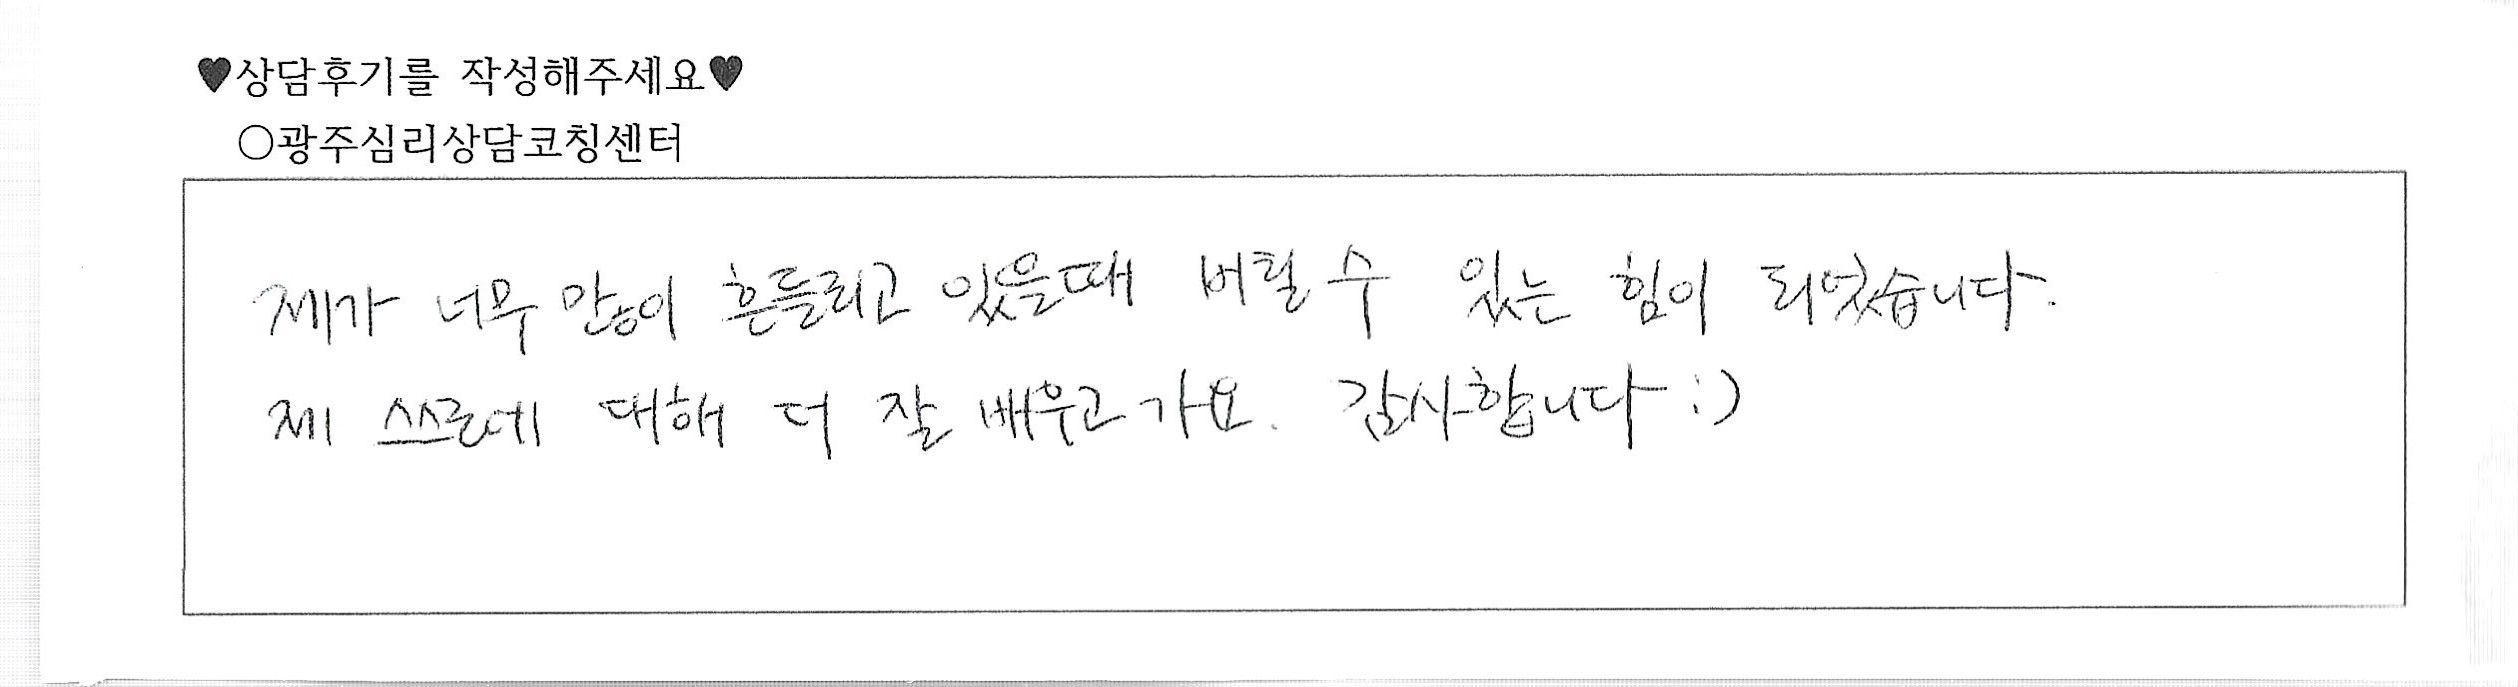 ♥상담후기를 작성해주세요♥
○광주심리상담코칭센터
제가 너무 많이 흔들리고 있을때 버틸 수 있는 힘이 되었습니다.
제 스스로에 대해 더 잘 배우고 가요. 감사합니다 :)